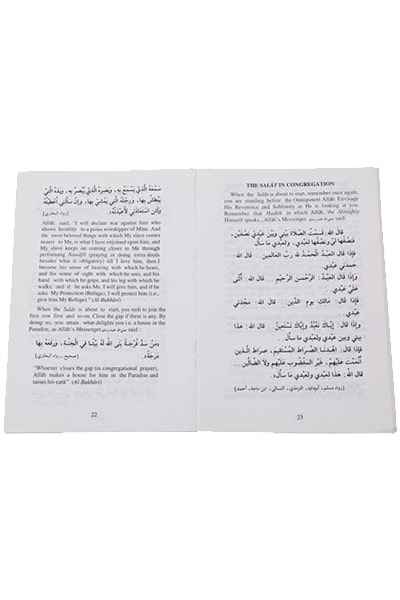 سَمْعَهُ الَّذِي يَسْمَعُ بِهِ، وَبَصَرَهُ الَّذِي يُبْصِرُ بِهِ، وَيَدَهُ الَّتِي
يَبْطِشُ بِهَا، وَرِجْلَهُ الَّتِي يَمْشِي بِهَا، وَإِنْ سَأَلَنِي أَعْطَيْتُهُ،
وَلَئِنِ اسْتَعَاذَنِي لَأُعِيذَنَّهُ (رواه البخاري)
Allâh said, "I will declare war against him who
shows hostility to a pious worshipper of Mine. And
the most beloved things with which My slave comes
nearer to Me, is what I have enjoined upon him; and
My slave keeps on coming closer to Me through
performing Nawâfil (praying or doing extra deeds
besides what is obligatory) till I love him, then I
become his sense of hearing with which he hears,
and his sense of sight with which he sees, and his
hand with which he grips, and his leg with which he
walks; and if he asks Me, I will give him, and if he
asks My Protection (Refuge), I will protect him (i.e.,
give him My Refuge)." (Al-Bukhâri)
When the Salât is about to start, you rush to join the
first row first and so on. Close the gap if there is any. By
doing so, you attain what delights you i.e. a house in the
Paradise, as Allâh's Messenger said:
وَمَنْ سَدَّ فُرْجَةً بَنَى اللَّهُ لَهُ بَيْتًا فِي الْجَنَّةِ، وَرَفَعَهُ بِهَا
دَرَجَةً،
"Whoever closes the gap (in congregational prayer),
Allâh makes a house for him in the Paradise and
raises his rank" (Al-Bukhâri)
22
THE SALÂT IN CONGREGATION
When the Salât is about to start, remember once again,
you are standing before the Omnipotent Allâh. Envisage
His Reverence and Sublimity as He is looking at you.
Remember that Hadith in which Allâh, the Almighty
Himself speaks. Allâh's Messenger said:
قَالَ اللهُ: قَسَمْتُ الصَّلَاةَ بَيْنِي وَبَيْنَ عَبْدِي نِصْفَيْنِ،
فَنِصْفُهَا لِي وَنِصْفُهَا لِعَبْدِي، وَلِعَبْدِي مَا سَأَلَ
فَإِذَا قَالَ العَبْدُ: الْحَمْدُ للهِ رَبِّ العَالَمِينَ. قَالَ اللهُ:
حَمِدَنِي عَبْدِي
وَإِذَا قَالَ: الرَّحْمَنِ الرَّحِيمِ. قَالَ اللهُ: أَثْنَى
عَلَيَّ عَبْدِي
وَإِذَا قَالَ: مَالِكِ يَوْمِ الدِّينِ. قَالَ اللهُ: مَجَّدَنِي
عَبْدِي
فَإِذَا قَالَ: إِيَّاكَ نَعْبُدُ وَإِيَّاكَ نَسْتَعِينُ. قَالَ اللهُ: هَذَا
بَيْنِي وَبَيْنَ عَبْدِي وَلِعَبْدِي مَا سَأَلَ
فَإِذَا قَالَ: اهْدِنَا الصِّرَاطَ المُسْتَقِيمَ، صِرَاطَ الَّذِينَ
أَنْعَمْتَ عَلَيْهِمْ، غَيْرِ المَغْضُوبِ عَلَيْهِمْ وَلَا الضَّالِّينَ.
قَالَ اللهُ: هَذَا لِعَبْدِي وَلِعَبْدِي مَا سَأَلَ.
(رواه مسلم، أبوداود، الترمذي، النسائي، ابن ماجه، أحمد)
23